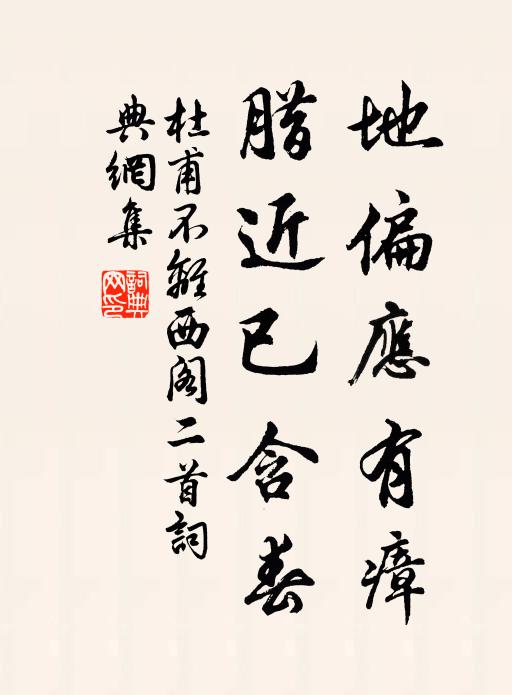 地偏應有瘴
腊近已含春
杜甫不離西阁二首詞
典網集
詞典網印